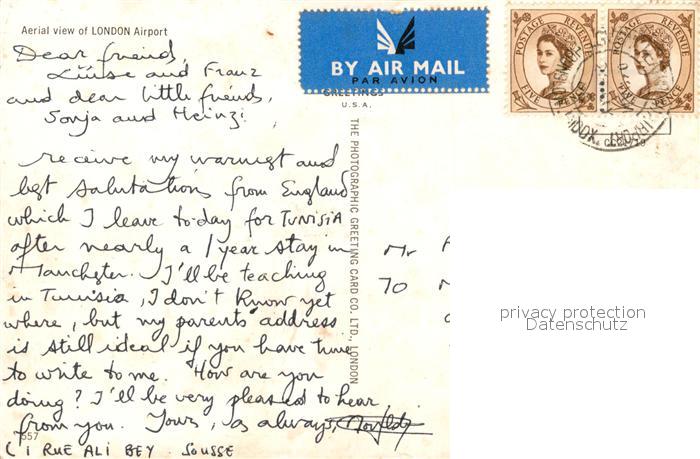 Aerial view of LONDON Airport
Dear friends,
Luise and Franz
and dear little friends,
Sonja and Heinz!
receive my warmest and
best salutations from England
which I leave to-day for TUNISIA
after nearly a 1 year stay in
Manchester. I'll be teaching
in Tunisia, I don't know yet
where, but my parents' address
is still ideal if you have time
to write to me. How are you
doing? I'll be very pleased to hear
from you. Yours, as always,
557
1 RUE ALI BEY SOUSSE
BY AIR MAIL
PAR AVION
GREETINGS
U.S.A.
THE PHOTOGRAPHIC GREETING CARD CO. LTD., LONDON
POSTAGE REVENUE
FIVE PENCE
POSTAGE REVENUE
FIVE PENCE
Mr
To
privacy protection
Datenschutz